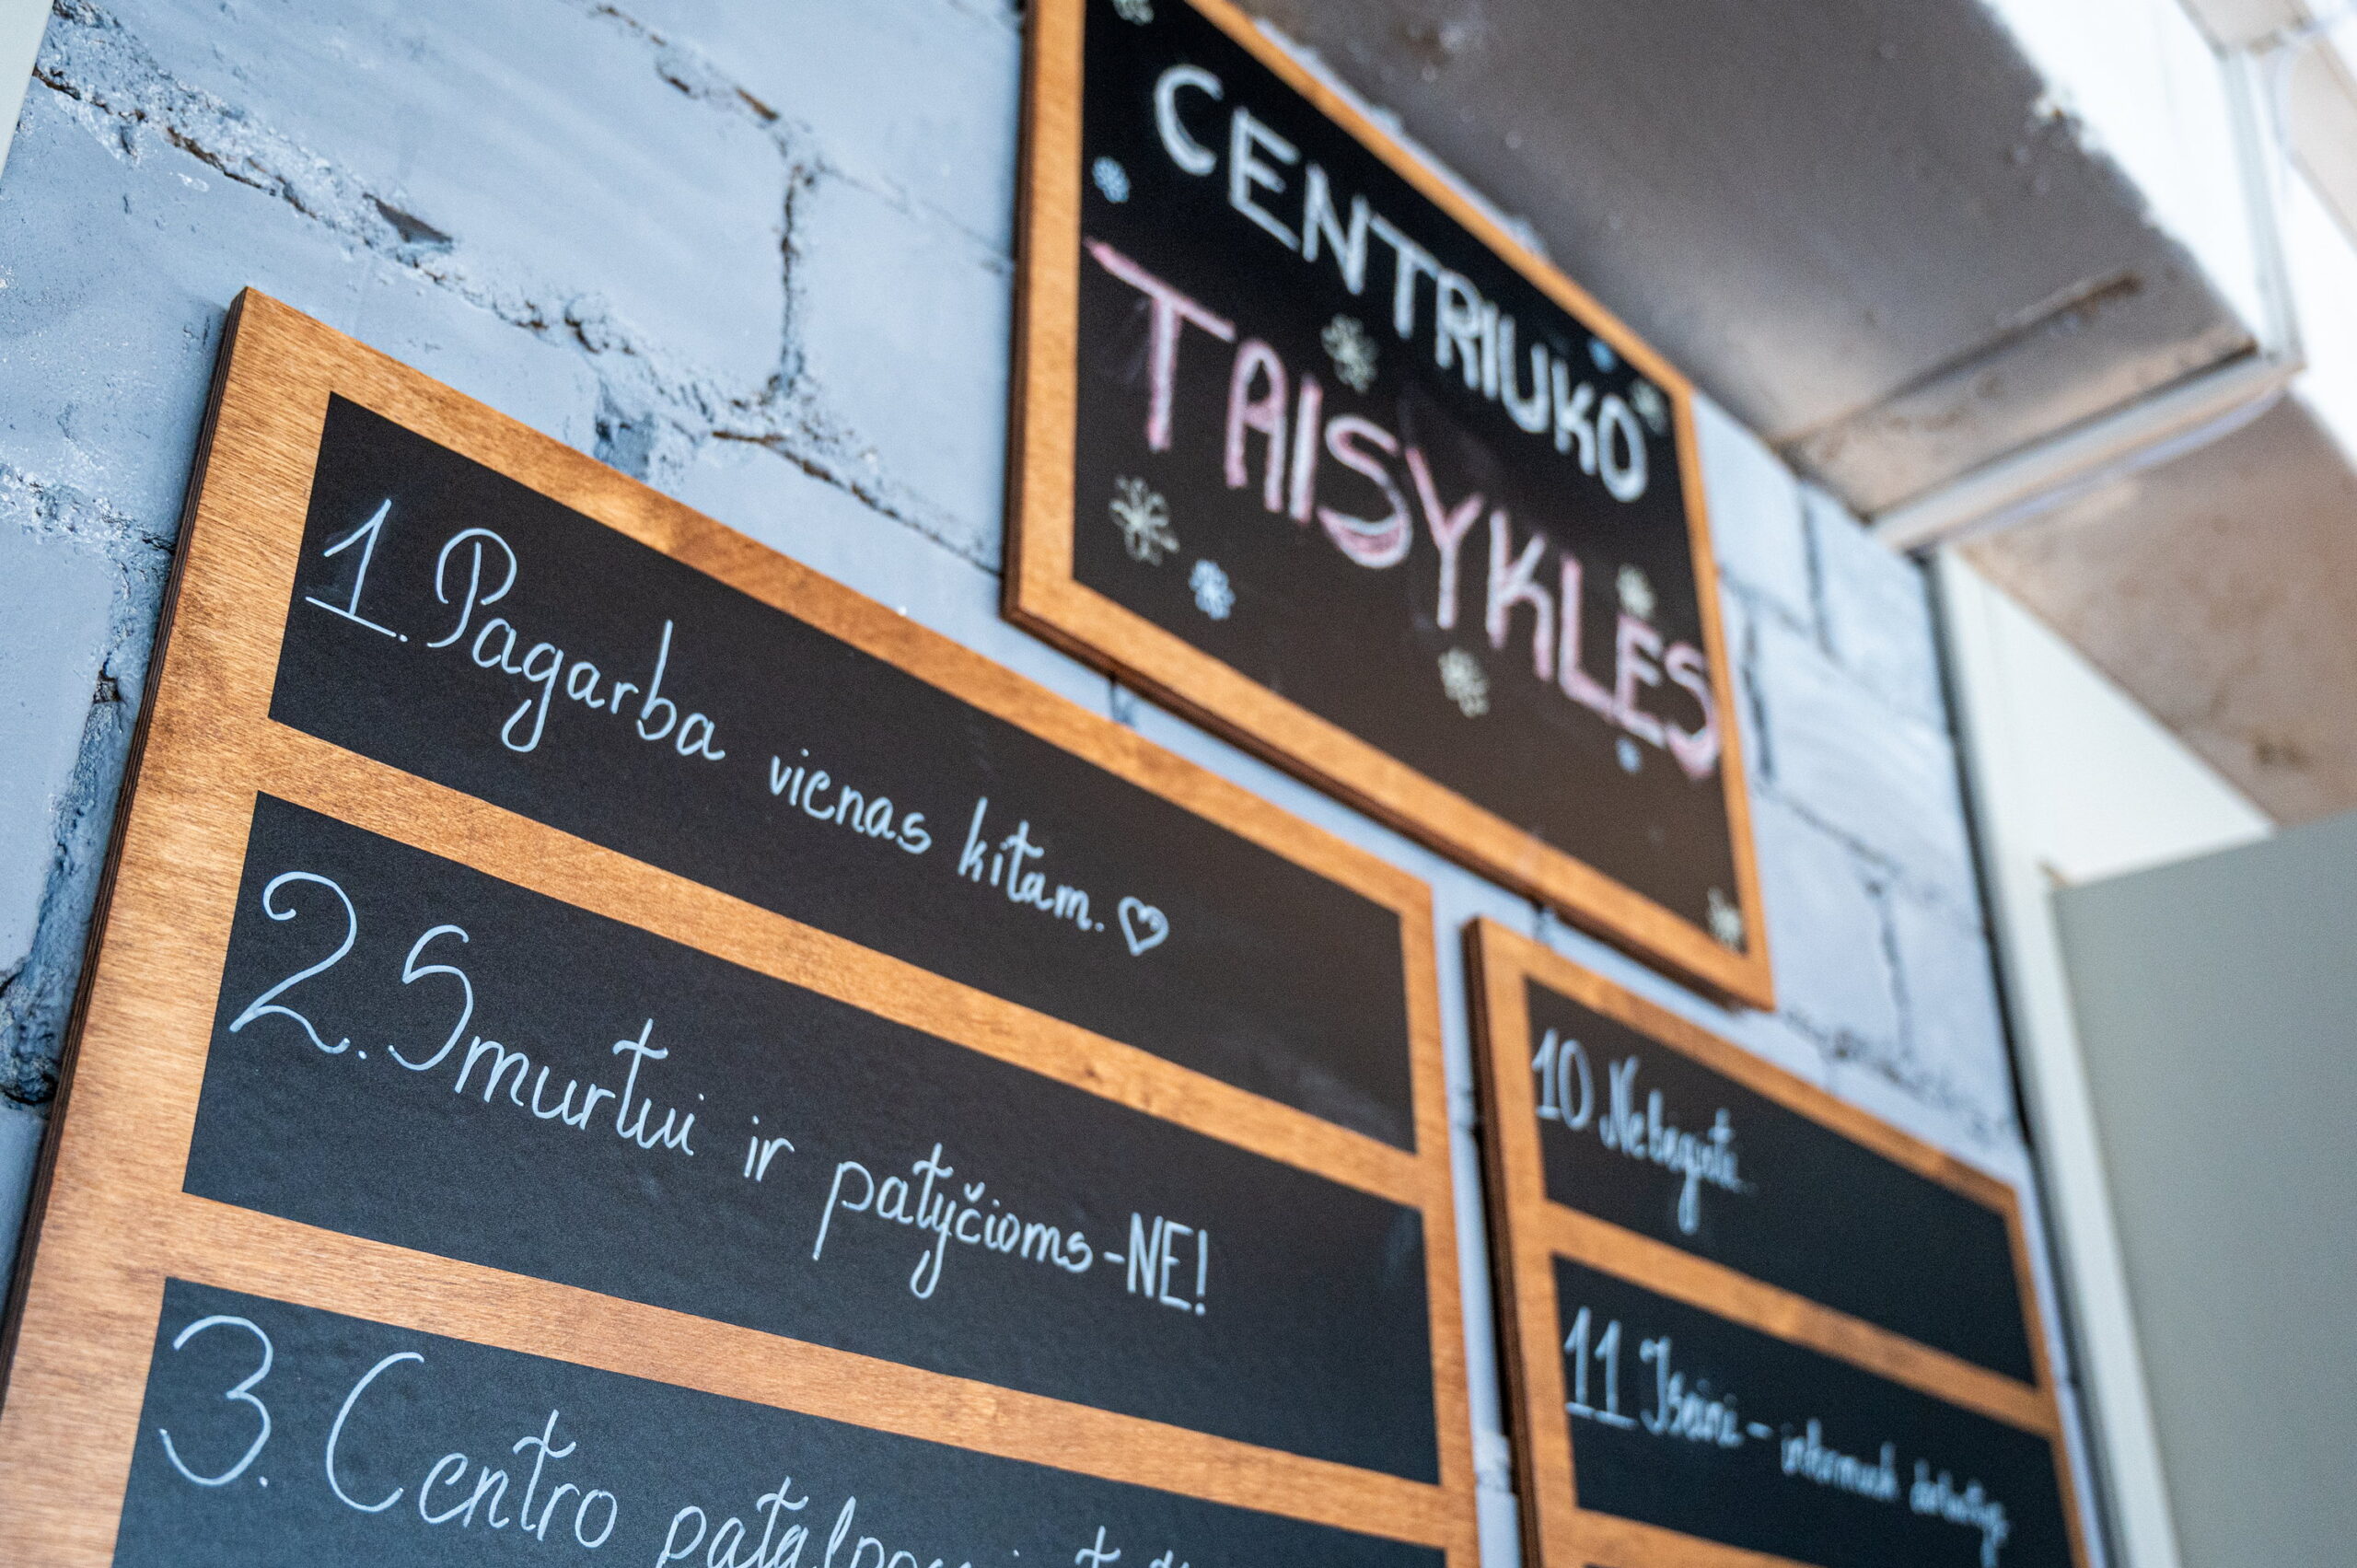 CENTRIUKO
TAISYKLĖS
1. Pagarba vienas kitam. ♡
2. Smurtui ir patyčioms-NE!
3. Centro
10 Nebėgioti.
11 Išeini - informuok